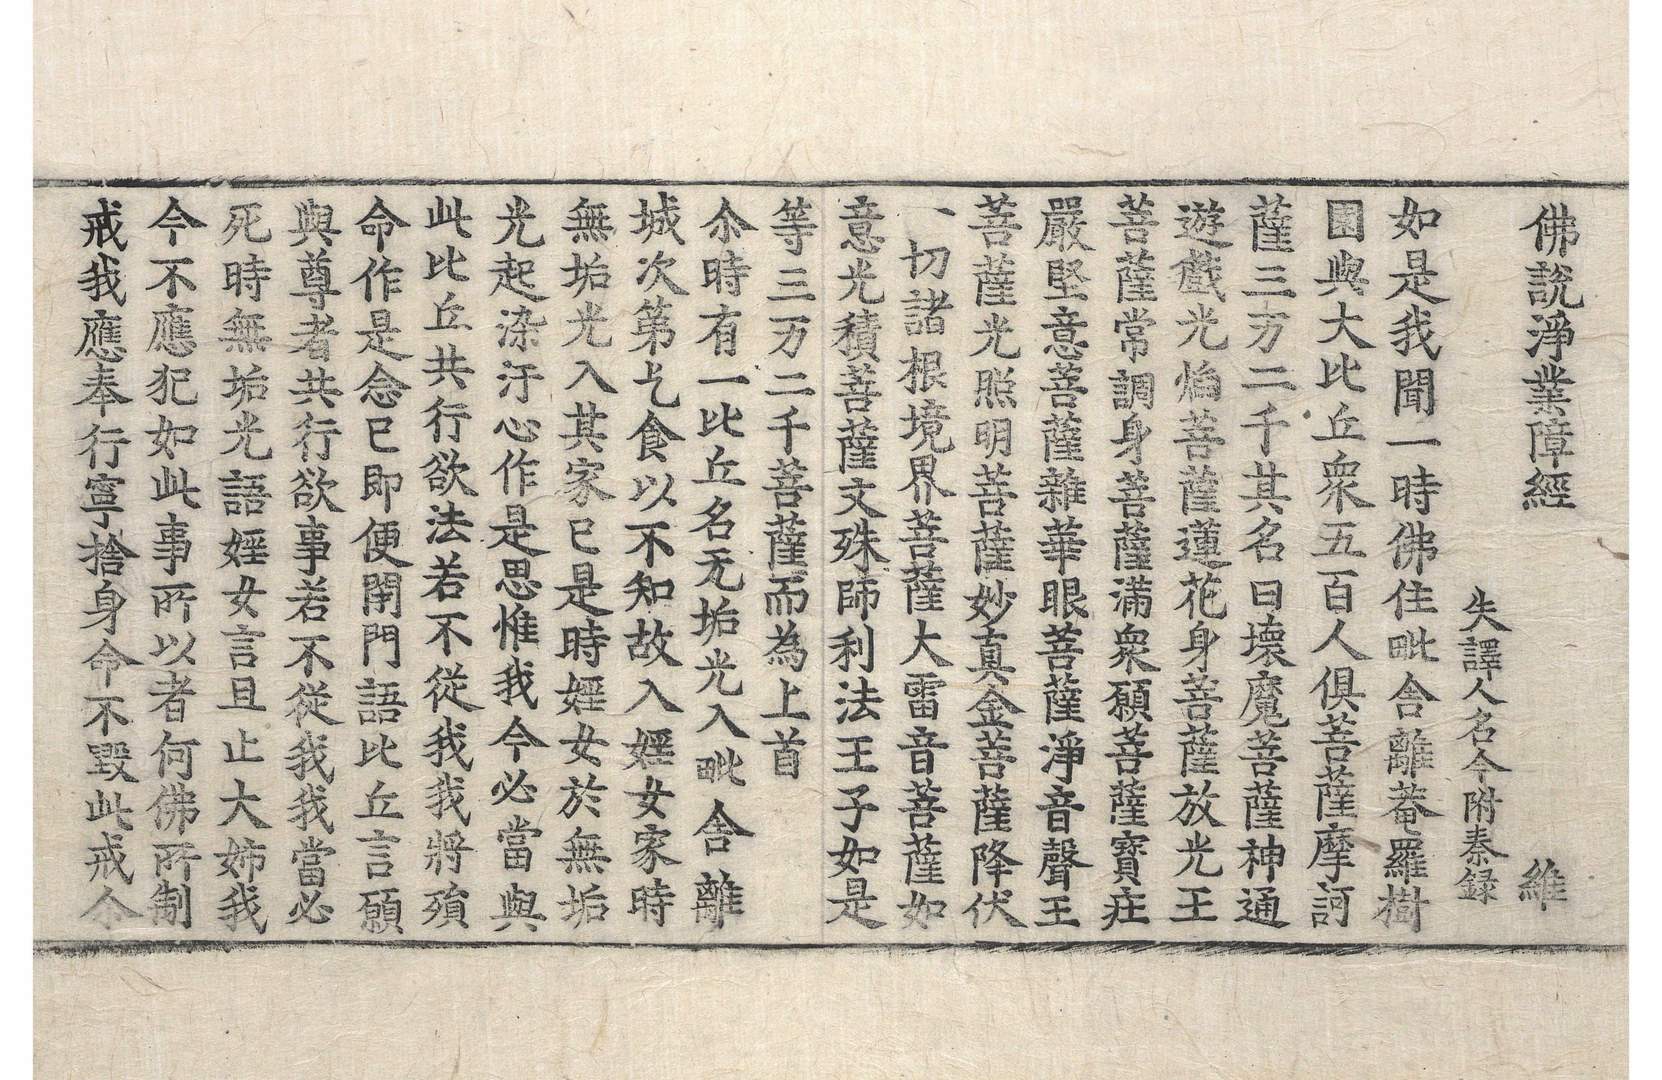 佛說淨業障經 維
失譯人名今附秦録
如是我聞一時佛住毗舍離菴羅樹
園與大比丘衆五百人俱菩薩摩訶
薩三万二千其名曰壞魔菩薩神通
遊戲光焰菩薩蓮花身菩薩放光王
菩薩常調身菩薩滿衆願菩薩寶莊
嚴堅意菩薩雜華眼菩薩淨音聲王
菩薩光照明菩薩妙真金菩薩降伏
一切諸根境界菩薩大雷音菩薩如
意光積菩薩文殊師利法王子如是
等三万二千菩薩而為上首
尒時有一比丘名无垢光入毗舍離
城次第乞食以不知故入婬女家時
無垢光入其家已是時婬女於無垢
光起染汙心作是思惟我今必當與
此比丘共行欲法若不從我我將殞
命作是念已即便閇門語比丘言願
與尊者共行欲事若不從我我當必
死時無垢光語婬女言且止大姊我
今不應犯如此事所以者何佛所制
戒我應奉行寧捨身命不毀此戒今